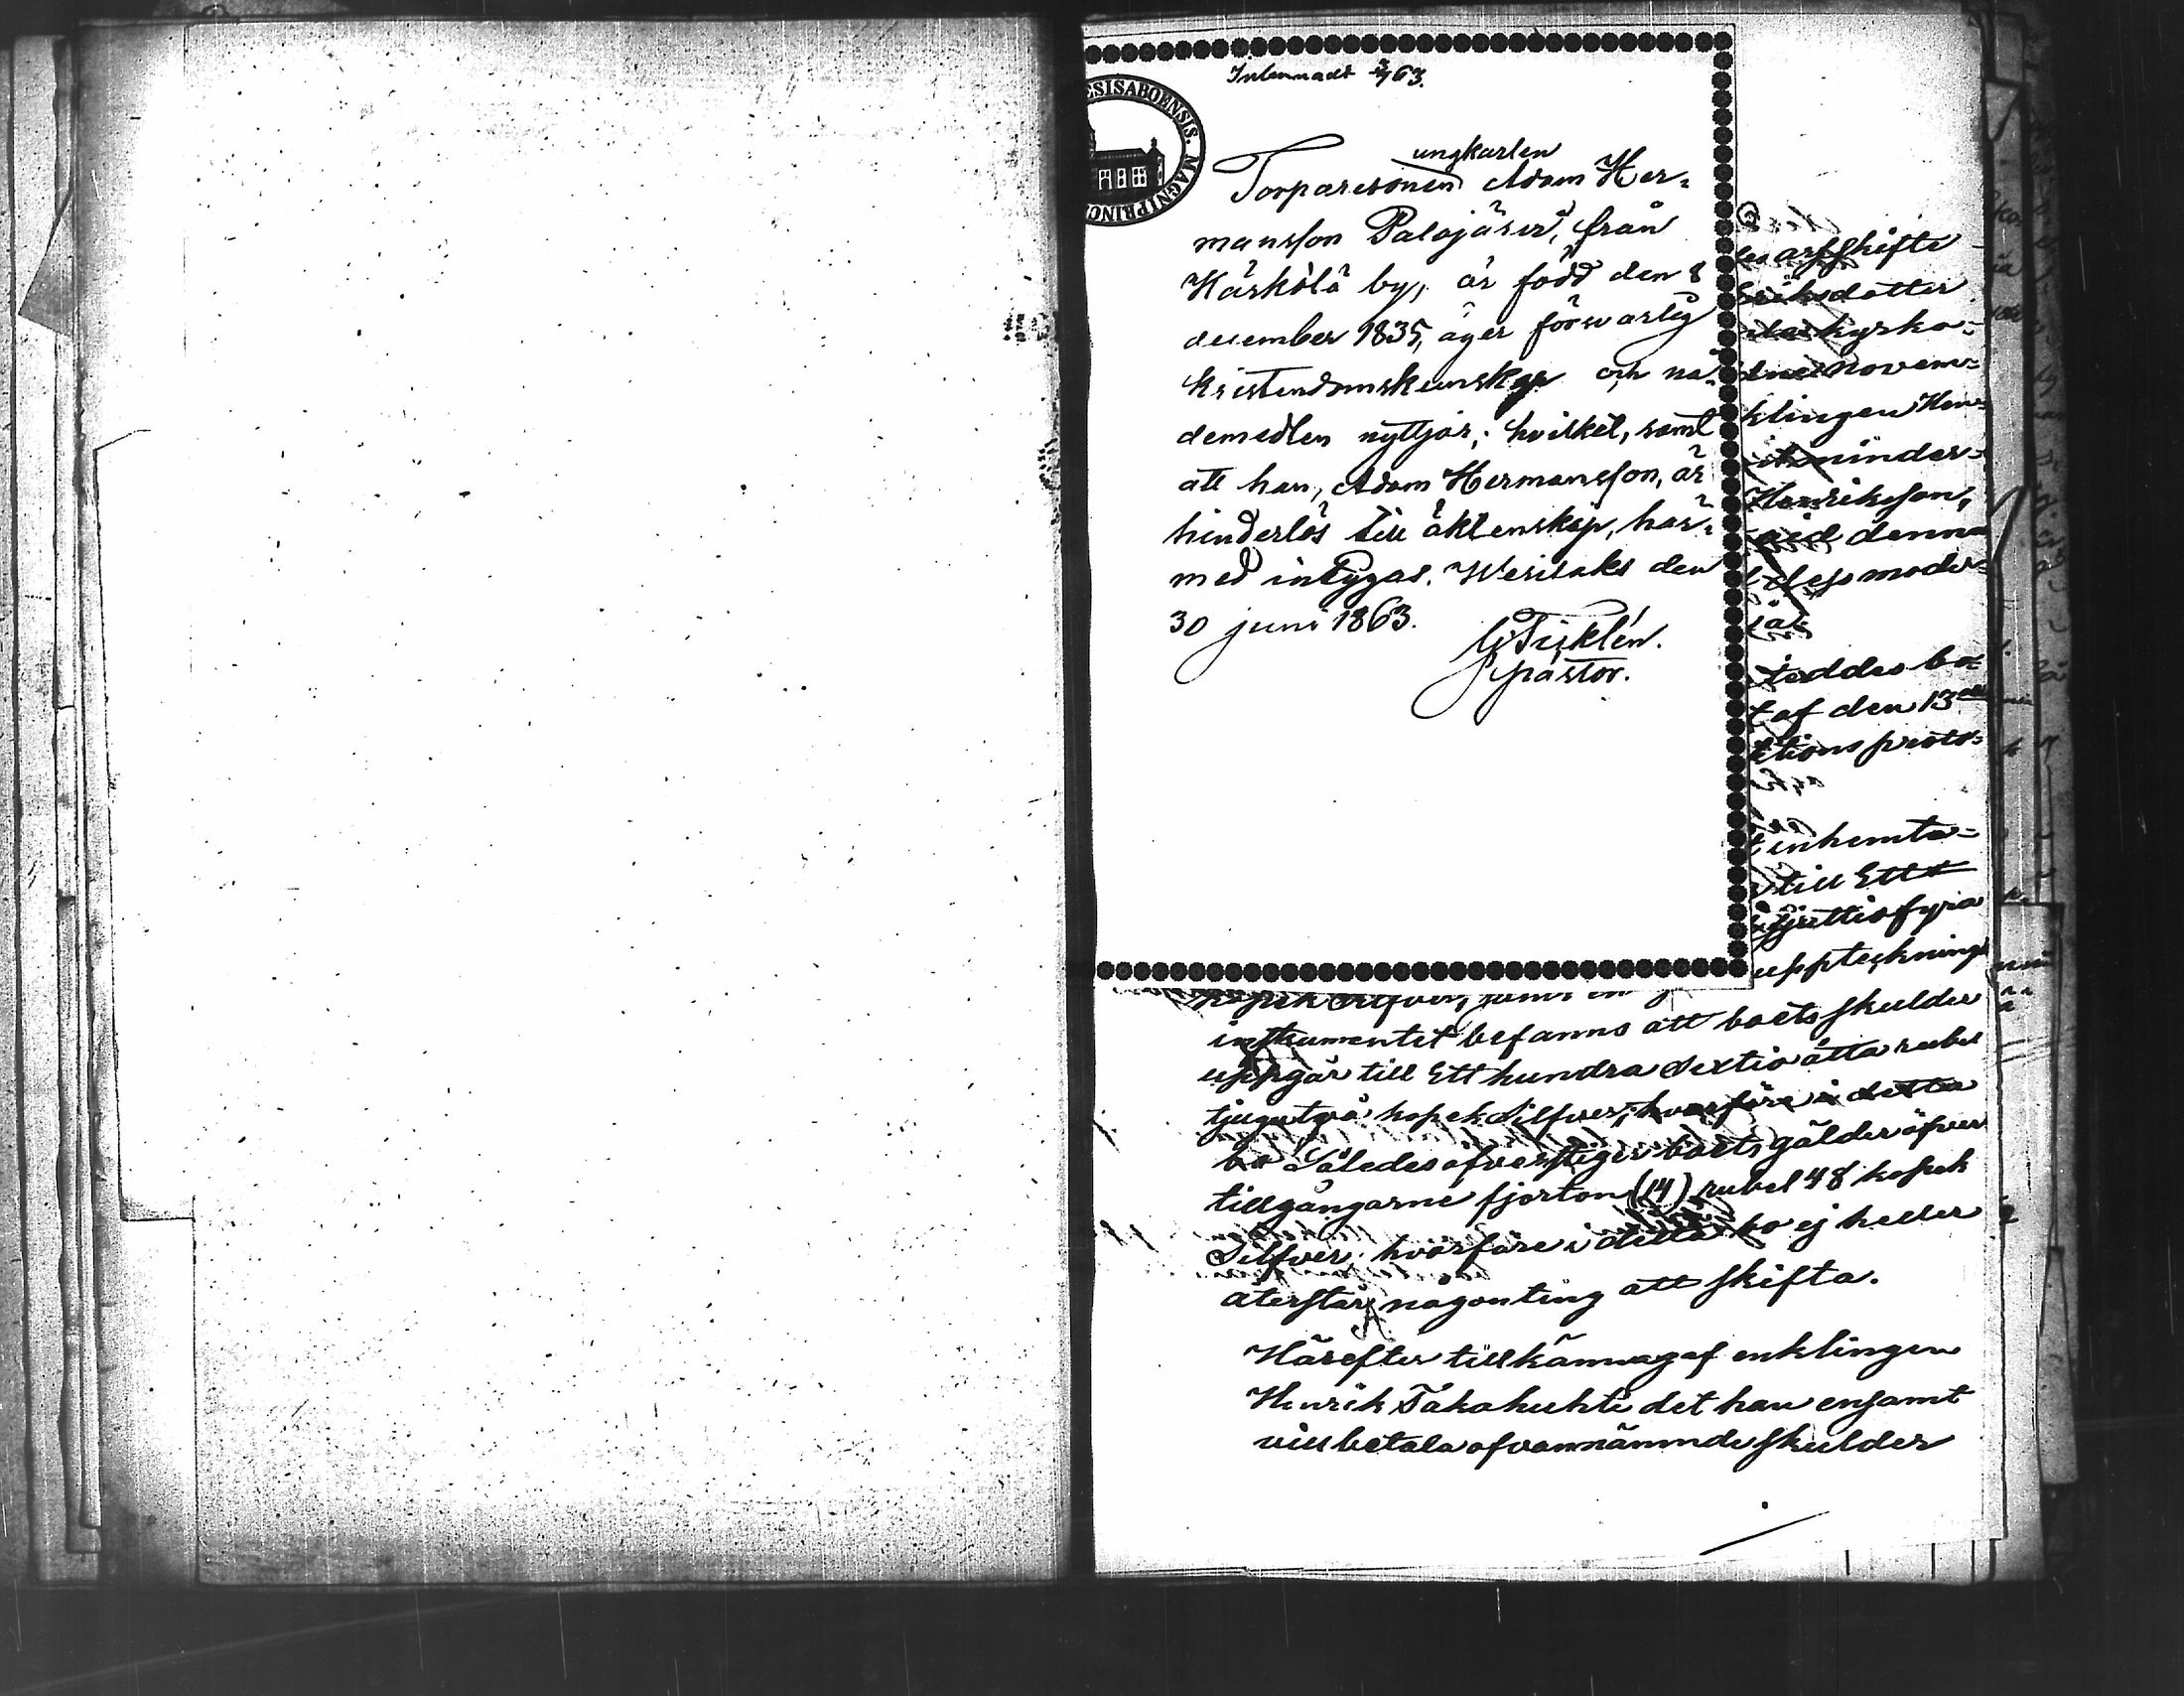 Inlemnadt 3/7 63.
ESISABOENSIS. MAGNIPRINC
ungkarlen
Torparesonen Adam Her=
mansson Palojärvi, från
Kärkölä by, är född den 8
december 1835, äger förswarlig
kristendomskunskap och nå=
demedlen nyttjar; hvilket, samt
att han, Adam Hermansson, är
hinderlös till äktenskap, här=
med intygas. Wesilaks den
30 juni 1863.
pastor.
arfskifte
riksdotter
kyrko=
Novem=
klingen Hen=
minder=
Henriksson,
vid denna
dess moder=
teddes bo=
af den 13
ktions proto=
inhemta=
till Ett
fyra
uppteckning
kopek Silfver, samt
instrumentet befanns att boets skulder
uppgår till Ett hundra Sextio åtta rubel
tjugutvå kopek Silfver; hvarföre i detta
bo Således öfverstiger boets gälder öfver
tillgångarne fjorton (14) rubel 48 kopek
Silfver, hvarföre i detta bo ej heller
återstår någonting att skifta.
Härefter tillkännagaf enklingen
Henrik Takahuhti det han ensamt
vill betala ofvannämnde skulder